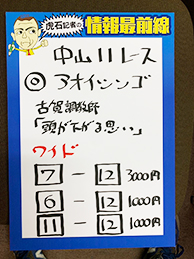 虎石記者の
情報最前線
中山11レース
◎アオイシンゴ
古賀調教師
「頭が下がる思い」
ワイド
7-12 3000円
6-12 1000円
11-12 1000円